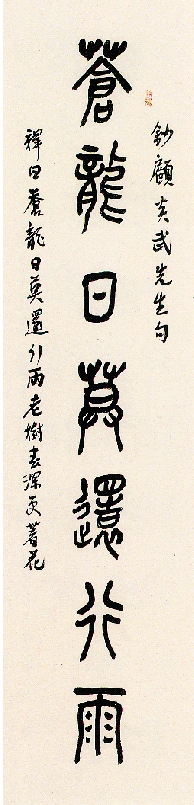 鈔顧炎武先生句
蒼龍日莫還行雨
釋曰蒼龍日莫還行雨老樹春深更著花